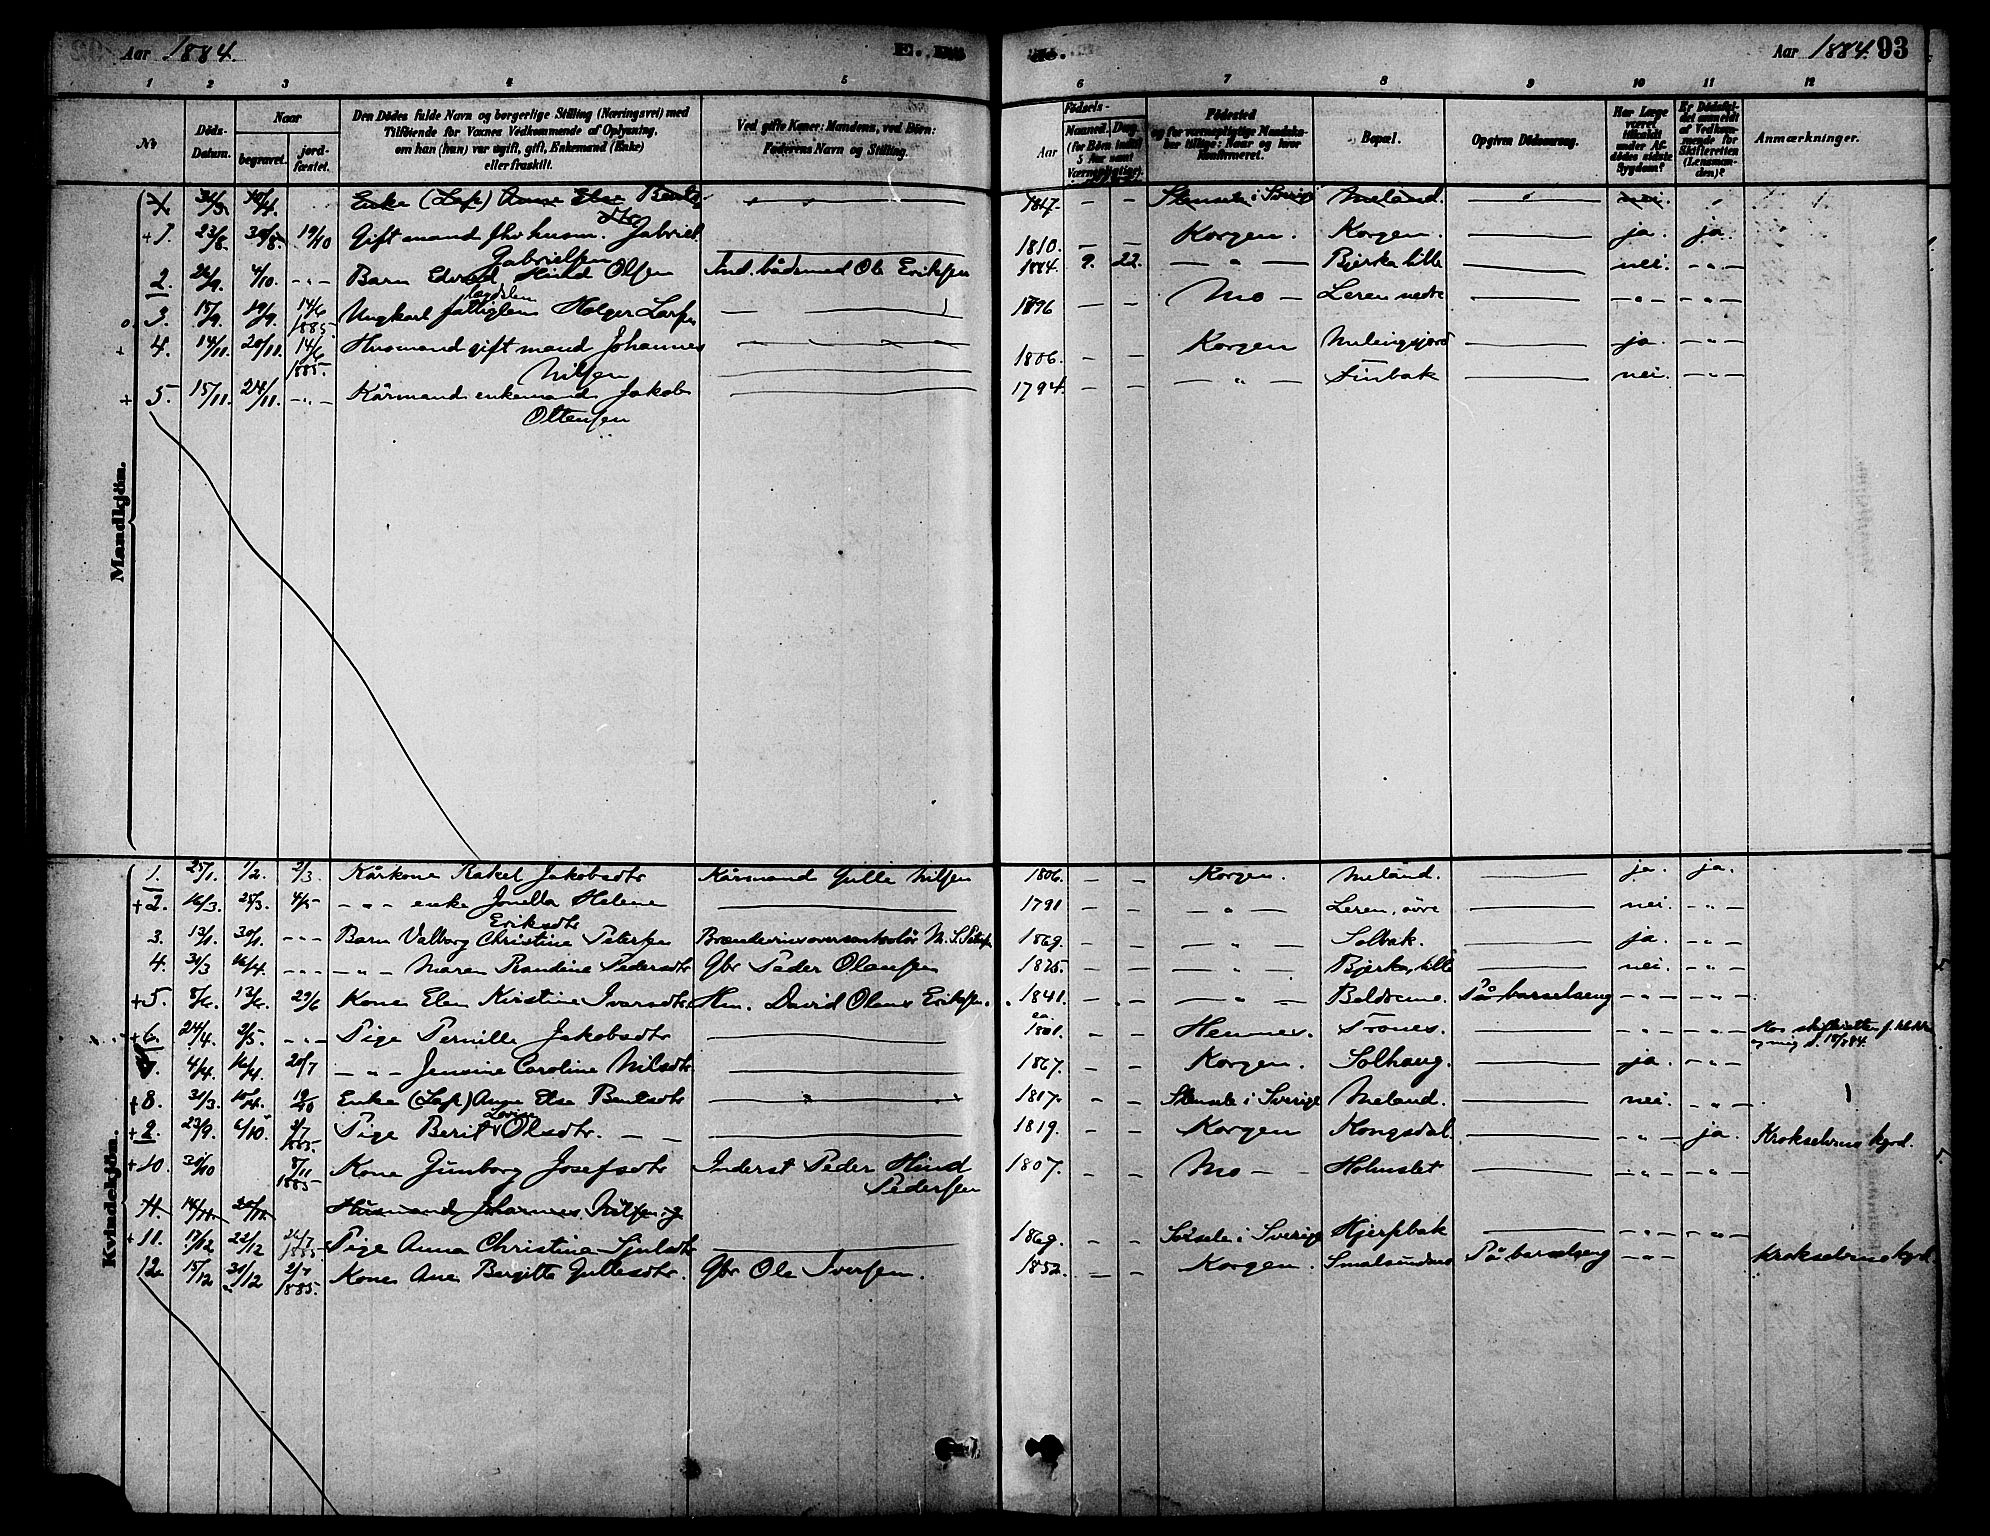 Aar 1884.
Aar 1884. 93
1 2 3 4 5 6 7 8 9 10 11 12
No
Døds-Datum.
Naar
begravet.
jord-fæstet.
Den Dødes fulde Navn og borgerlige Stilling (Næringsvei) med
Tilföiende for Voxnes Vedkommende af Oplysning,
om han (hun) var ugift, gift, Enkemand (Enke)
eller fraskilt.
Ved gifte Koner: Mandens, ved Börn:
Faderens Navn og Stilling.
Födsels-
Aar
Maaned. Dag.
(for Börn indtil
5 Aar samt
Værnepligtige).
Födested
og for værnepligtige Mandskaber tillige: Naar og hvor
Konfirmeret.
Bopæl.
Opgiven Dödsaarsag.
Har Læge
været
tilkaldt
under Afdödes sidste
Sygdom?
Er Dödsfaldet anmeldt
af Vedkommende for
Skifteretten
(Lensmanden)?
Anmærkninger.
Mandkjön.
31/3 10/4 Enke (Lap) Anne Else Bentsdtr 1817. — — Stensele i Sverige Meland. nei.
+ 1. 23/8. 30/8. 19/10 Gift mand Gabriel Gabrielsen 1810. — — Korgen. Korgen. ja. ja.
2. 26/9. 4/10. -"- Barn Edvard Hind Olsen Ole Eriksen 1884 9. 22. — " — Bjerka lille nei. -"-
3. 15/9. 19/9. 14/6 1885 Ungkarl fattiglem Holger Larsen 1896 — — Mo — Leren nedre -"- -"-
+ 4. 14/11. 20/11. 14/6 1885. Husmand gift mand Johannes Nilsen 1806. — — Korgen ja. -"-
+ 5. 15/11. 24/11. -"- Kårmand enkemand Jakob Ottensen 1794. — " — Finbak nei. -"-
Kvindekjön.
1. 25/1. 1/2. 2/3. Kårkone Rakel Jakobsdtr Kårmand Gulle Nilsen 1806. — — Korgen. Meland. ja. ja.
+ 2. 16/3. 25/3. 4/5 -"- enke Jonetta Helene Eriksdtr 1791 — — — " — Leren, övre nei. -"-
3. 13/1. 30/1. -"- Barn Valborg Christine Petersen 1869. — — — " — Solbak. ja. -"-
4. 31/3 16/4. -"- -"- Maren Randine Pedersdtr Gbr Peder Olausen 1825. — — — " — Bjerka, lille nei. -"-
+ 5. 8/6. 13/6. 29/6 Kone Elen Kirstine Ivarsdtr Hm. David Olaus Eriksen. 1841. — — — " — På barselseng -"- -"-
+ 6. 24/4. 3/5. -"- Pige Pernille Jakobsdtr ca. 1801. — — Hemnes. Trones. -"- -"-
7. 4/4. 16/4. 20/7 -"- Jensine Caroline Nilsdtr 1867. — — Korgen. Solhaug. ja. -"-
+ 8. 31/3. 10/4. 19/10 Enke (Lap) Anne Else Bentsdtr 1817. — — Stensele i Sverige Meland. nei. -"-
+ 9. 23/9. 6/10. 2/7 1885. Pige Berit Lovise Olsdtr. 1819. — — Korgen Kongsdal. -"- ja. Krokselvens kgrd.
+ 10. 31/10 8/11 1885 Kone Gunborg Josefsdtr Inderst Peder Hind Pedersen 1807. — — Mo — Holmslet -"- -"-
11. 14/11. 20/11. Husmand Johannes Nilsen
+ 11. 17/12 22/12 26/7 1885 Pige Anna Christina Sjulsdtr 1869. — — Sorsele i Sverige Hjerpbak -"- -"-
12. 15/12 31/12 2/7 1885. Kone Ane Bergitte Gullesdtr. Gbr Ole Iversen. 1852. — — Korgen. På barselseng -"- Krokselvens kgrd.